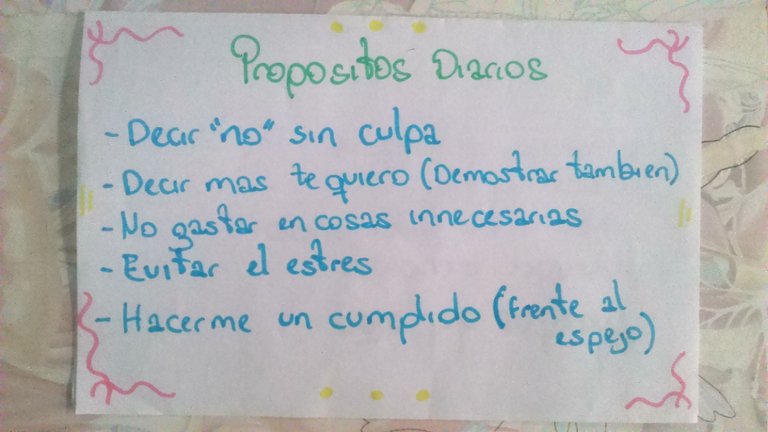 Propositos Diarios
- Decir "no" sin culpa
- Decir mas te quiero (Demostrar tambien)
- No gastar en cosas innecesarias
- Evitar el estres
- Hacerme un cumplido (frente al
espejo)